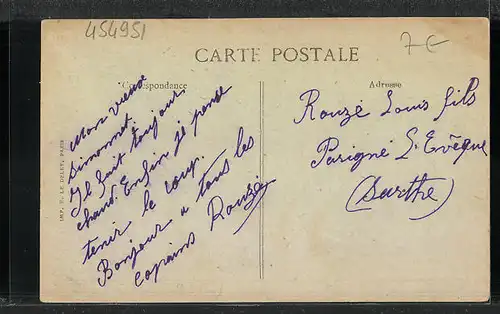 454951
7€
CARTE POSTALE
Correspondance
Adresse
Mon vieux
Simonnet.
Il fait toujours
chaud. Enfin je pense
tenir le coup.
Bonjour a tous les
copains Rouzé
Rouzé Louis fils
Parigné L'Evêque
(Sarthe)
IMP. E. LE DELEY, PARIS